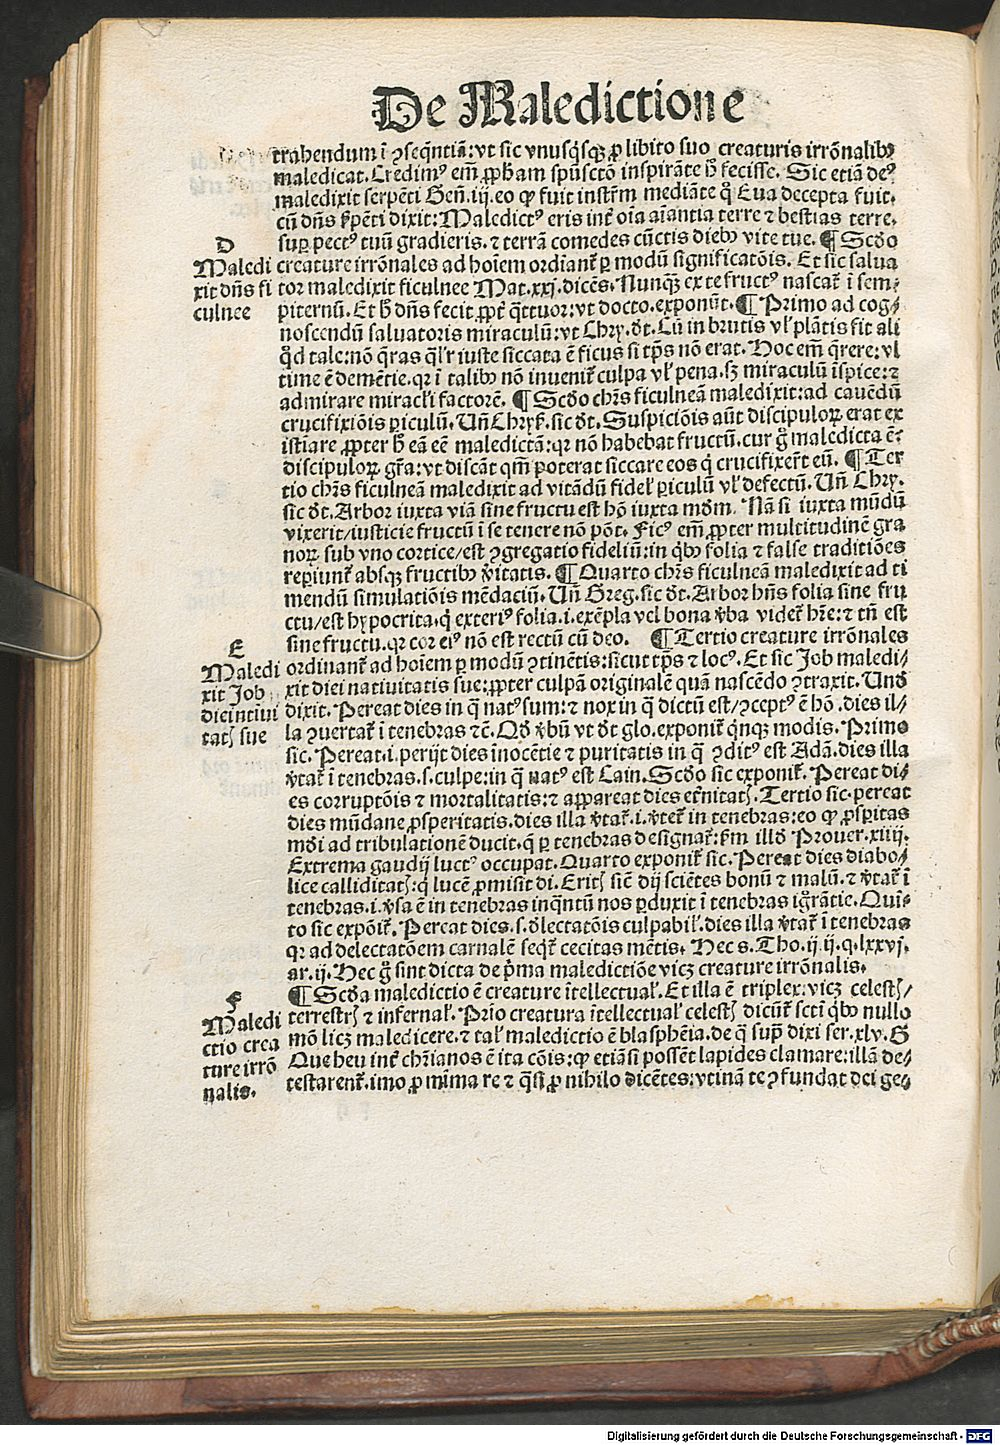 De Maledictione
trahendum ī ꝯseq̄ntiā: vt sic vnusq̇sqꝫ ꝓ libito suo creaturis irrōnalibꝰ
maledicat. Credimꝰ em̄ ꝓph̄am spūsctō inspirāte h̄ fecisse. Sic etiā deꝰ
maledixit serpēti Gen̄. iij. eo ꝙ fuit instr̄m mediāte q̊ Eua decepta fuit.
cū dn̄s ẜpēti dixit: Maledictꝰ eris int̄ oīa aīantia terre ⁊ bestias terre.
suꝑ pectꝰ tuū gradieris. ⁊ terrā comedes cūctis diebꝰ vite tue. ¶ Scd̄o
creature irrōnales ad hoīem ordianť ꝑ modū significatōis. Et sic salua
tor maledixit ficulnee Mat. xxj. dicēs. Nunqꝫ ex te fructꝰ nascať ī sem-
piternū. Et h̄ dn̄s fecit ꝓpť q̄ttuor: vt docto. exponūt. ¶ Primo ad cog/
noscendū saluatoris miraculū: vt Chry. d̄t. Cū in brutis vľ plātis fit ali
q̇d tale: nō q̄ras q̄lr̄ iuste siccata ē ficus si tp̄s nō erat. Hoc em̄ q̄rere: vl
time ē demētie. qꝛ ī talibꝰ nō inueniť culpa vľ pena. sꝫ miraculū īspice: ⁊
admirare miracľi factorē. ¶ Scd̄o chr̄s ficulneā maledixit: ad cauēdū
crucifixiōis ꝑiculū. Vn̄ Chryẜ. sic d̄t. Suspiciōis aūt discipuloꝝ erat ex
istiare ꝓpter h̄ eā eē maledictā: qꝛ nō habebat fructū. cur g̊ maledicta ē:
discipuloꝝ gr̄a: vt discāt qm̄ poterat siccare eos q̇ crucifixer̄t eū. ¶ Ter
tio chr̄s ficulneā maledixit ad vitādū fideľ ꝑiculū vľ defectū. Vn̄ Chry.
sic d̄t. Arbor iuxta viā sine fructu est hō iuxta mdm̄. Nā si iuxta mūdū
vixerit/ iusticie fructū ī se tenere nō pōt. Ficꝰ em̄ ꝓpter multitudinē gra
noꝝ sub vno cortice/ est ꝯgregatio fideliū: in q̇bꝰ folia ⁊ false traditiōes
reꝑiunť absqꝫ fructibꝰ v̄itatis. ¶ Quarto chr̄s ficulneā maledixit ad ti
mendū simulatiōis mēdaciū. Vn̄ Greg. sic d̄t. Arbor hn̄s folia sine fru
ctu/ est hypocrita. q̇ exteriꝰ folia. i. exēpla vel bona v̄ba videť hr̄e: ⁊ tn̄ est
sine fructu. qꝛ cor eiꝰ nō est rectū cū deo. ¶ Tertio creature irrōnales
ordinanť ad hoīem ꝑ modū ꝯtinētis: sicut tp̄s ⁊ locꝰ. Et sic Job maledi/
xit diei natiuitatis sue: ꝓpter culpā originalē quā nascēdo ꝯtraxit. Vnd̄
dixit. Pereat dies in q̄ natꝰ sum: ⁊ nox in q̄ dictū est/ ꝯceptꝰ ē hō. dies il/
la ꝯuertať ī tenebras ⁊c̄. Qd̄ v̄bū vt d̄t glo. exponiť q̇nqꝫ modis. Primo
sic. Pereat. i. perijt dies īnocētie ⁊ puritatis in q̄ ꝯditꝰ est Adā. dies illa
v̄tať ī tenebras. s. culpe: in q̄ natꝰ est Cain. Scd̄o sic exponiť. Pereat di/
es corruptōis ⁊ mortalitatis: ⁊ appareat dies eť̄nitatꝭ. Tertio sic. pereat
dies mūdane ꝓsperitatis. dies illa v̄tať. i. v̄teť in tenebras: eo ꝙ ꝓsꝑitas
mūdi ad tribulationē ducit. q̄ ꝑ tenebras designať: ẜm illd̄ Prouer. xiiij.
Extrema gaudij luctꝰ occupat. Quarto exponiť sic. Pereat dies diabo/
lice calliditatꝭ: q̇ lucē ꝓmisit di. Eritꝭ sic̄ dij sciētes bonū ⁊ malū. ⁊ v̄tať ī
tenebras. i. v̄sa ē in tenebras inq̄ntū nos ꝑduxit ī tenebras ig̊rātie. Quī-
to sic expōiť. Pereat dies. s. d̄lectatōis culpabiľ. dies illa v̄tať ī tenebras
qꝛ ad delectatōem carnalē seq̇ť cecitas mētis. Hec s. Tho. ij. ij. q. lxxvj.
ar. ij. Hec g̊ sint dicta de p̄ma maledictiōe vicꝫ creature irrōnalis.
¶ Scd̄a maledictio ē creature ītellectuaľ. Et illa ē triplex: vicꝫ celestꝭ/
terrestrꝭ ⁊ infernaľ. Prīo creatura ītellectuaľ celestꝭ dicūť scti q̇bꝰ nullo
mō licꝫ maledicere. ⁊ taľ maledictio ē blasphēia. de q̄ sup̄ dixi ser. xlv. G
Que heu int̄ chr̄ianos ē ita cōis: ꝙ etiā si possēt lapides clamare: illā de-
testarenť. imo ꝓ mīma re ⁊ q̄si ꝓ nihilo dicētes: vtinā te ꝯfundat dei ge-
D
Maledi
xit dn̄s fi
culnee
E
Maledi
xit Job
diei ntiui
tatꝭ sue
F
Maledi
ctio crea
ture irrō
nalis.
Digitalisierung gefördert durch die Deutsche Forschungsgemeinschaft - DFG